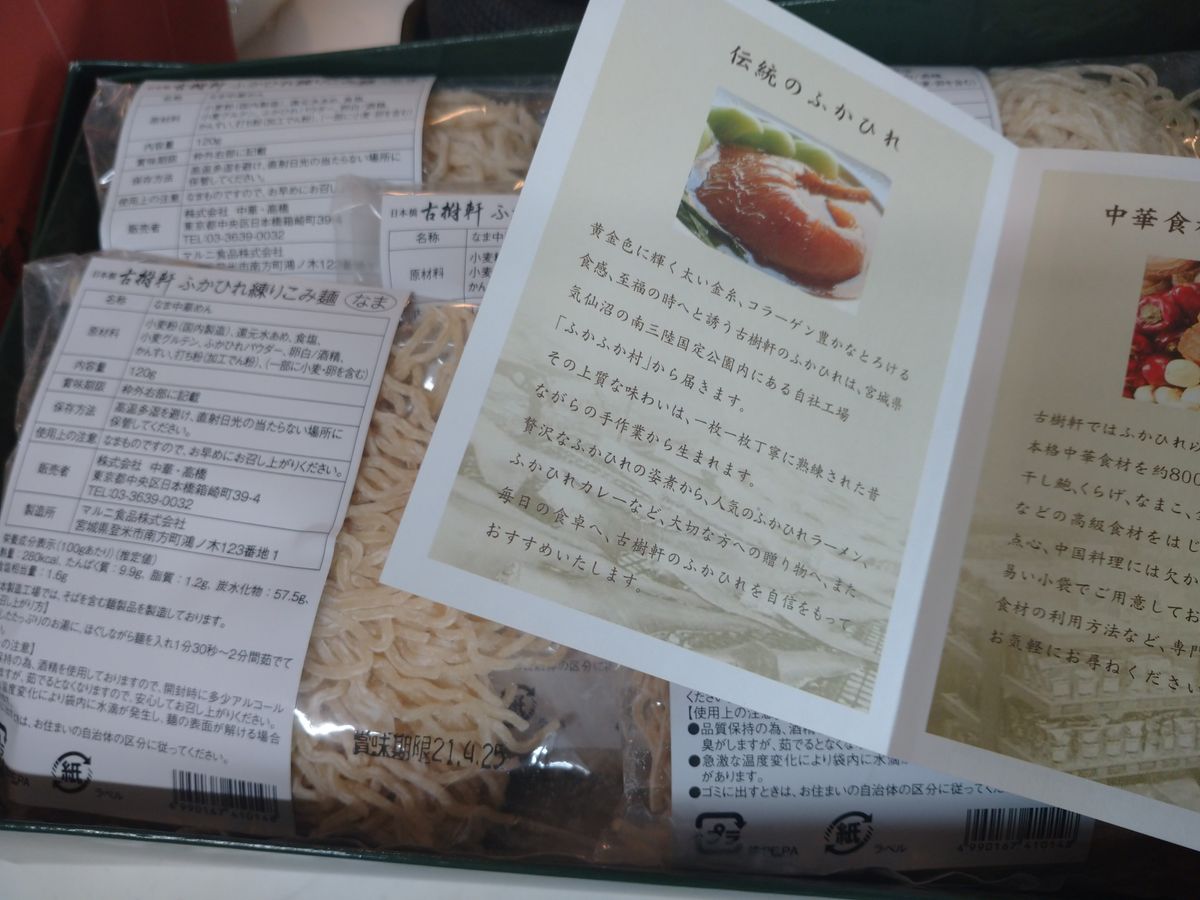 名称 なま中華めん
原材料
内容量 120g
賞味期限 枠外右部に記載
保存方法 高温多湿を避け、直射日光の当たらない場所に
保管してください。
使用上の注意 なまものですので、お早めにお召し
販売者 株式会社 中華・高橋
東京都中央区日本橋箱崎町39-4
TEL:03-3639-0032
マルニ食品株式会社
宮城県登米市南方町鴻ノ木123番
日本橋 古樹軒 ふ
名称 なま中
原材料 小麦
日本橋 古樹軒 ふかひれ練りこみ麺 なま
名称 なま中華めん
原材料 小麦粉(国内製造)、還元水あめ、食塩、
小麦グルテン、ふかひれパウダー、卵白/酒精、
かんすい、打ち粉(加工でん粉)、(一部に小麦・卵を含む)
内容量 120g
賞味期限 枠外右部に記載
保存方法 高温多湿を避け、直射日光の当たらない場所に
保管してください。
使用上の注意 なまものですので、お早めにお召し上がりください。
販売者 株式会社 中華・高橋
東京都中央区日本橋箱崎町39-4
TEL:03-3639-0032
製造所 マルニ食品株式会社
宮城県登米市南方町鴻ノ木123番地1
栄養成分表示(100gあたり)(推定値)
280kcal、たんぱく質:9.9g、脂質:1.2g、炭水化物:57.5g、
食塩相当量:1.6g
本製造工場では、そばを含む麺製品を製造しております。
召し上がり方】
たっぷりのお湯に、ほぐしながら麺を入れ1分30秒~2分間茹でて
の注意】
保持の為、酒精を使用しておりますので、開封時に多少アルコール
ますが、茹でるとなくなりますので、安心してお召し上がりください。
温度変化により袋内に水滴が発生し、麺の表面が解ける場合
は、お住まいの自治体の区分に従ってください。
紙
ラベル
4990167410148
賞味期限21.4.25
伝統のふかひれ
黄金色に輝く太い金糸、コラーゲン豊かなとろける
食感、至福の時へと誘う古樹軒のふかひれは、宮城県
気仙沼の南三陸国定公園内にある自社工場
「ふかふか村」から届きます。
その上質な味わいは、一枚一枚丁寧に熟練された昔
ながらの手作業から生まれます。
贅沢なふかひれの姿煮から、人気のふかひれラーメン、
ふかひれカレーなど、大切な方への贈り物へ、また
毎日の食卓へ、古樹軒のふかひれを自信をもって
おすすめいたします。
中華食
古樹軒ではふかひれ
本格中華食材を約800
干し鮑、くらげ、なまこ、
などの高級食材をはじ
点心、中国料理には欠か
易い小袋でご用意してお
食材の利用方法など、専門
お気軽にお尋ねください
【使用上の注意
●品質保持の為、酒精
臭がしますが、茹でるとなくな
●急激な温度変化により袋内に水滴
があります。
●ゴミに出すときは、お住まいの自治体の区分に従ってくだ
プラ
紙
ラベル
4990167410148